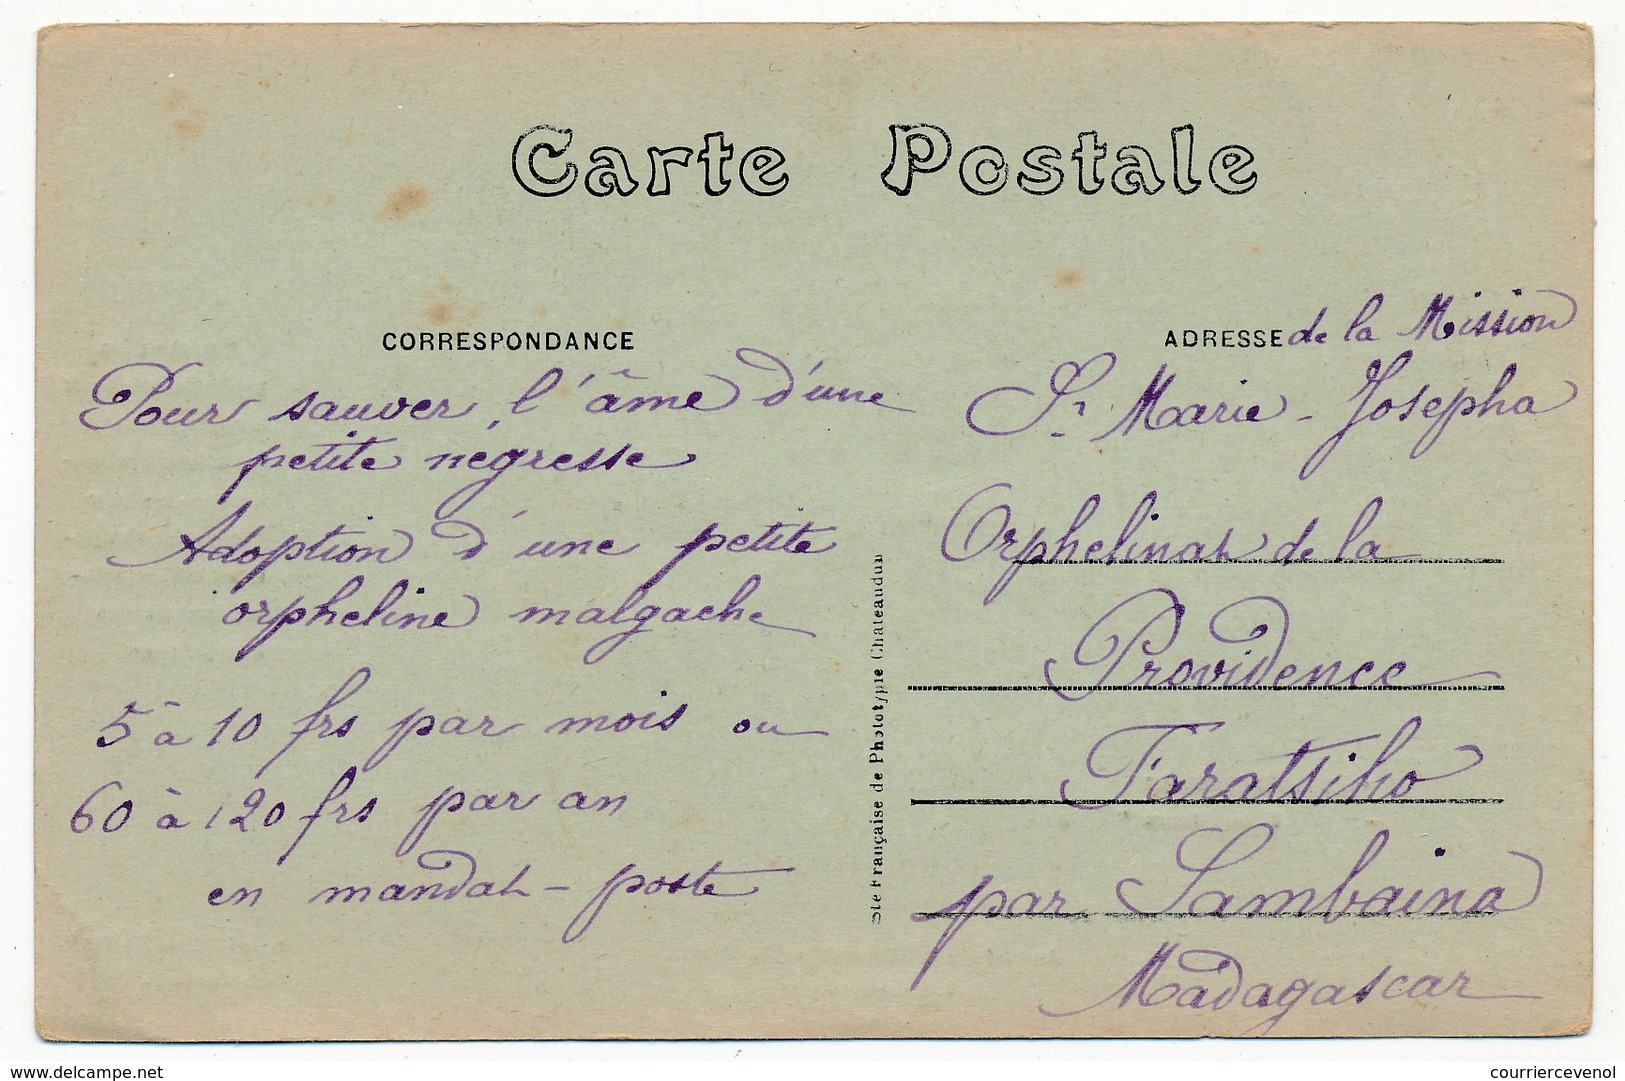 Carte Postale
CORRESPONDANCE
Pour sauver l'âme d'une
petite négresse
Adoption d'une petite
orpheline malgache
5 à 10 frs par mois ou
60 à 120 frs par an
en mandat-poste
Sté Française de Phototypie Chateaudun
ADRESSE de la Mission
Sr Marie-Josepha
Orphelinat de la
Providence
Faratsiho
par Sambaina
Madagascar
www.delcampe.net
courriercevenol